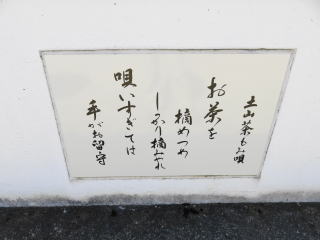 土山茶もみ唄
お茶を
摘めつめ
しっかり摘みゃれ
唄いすぎては
手がお留守